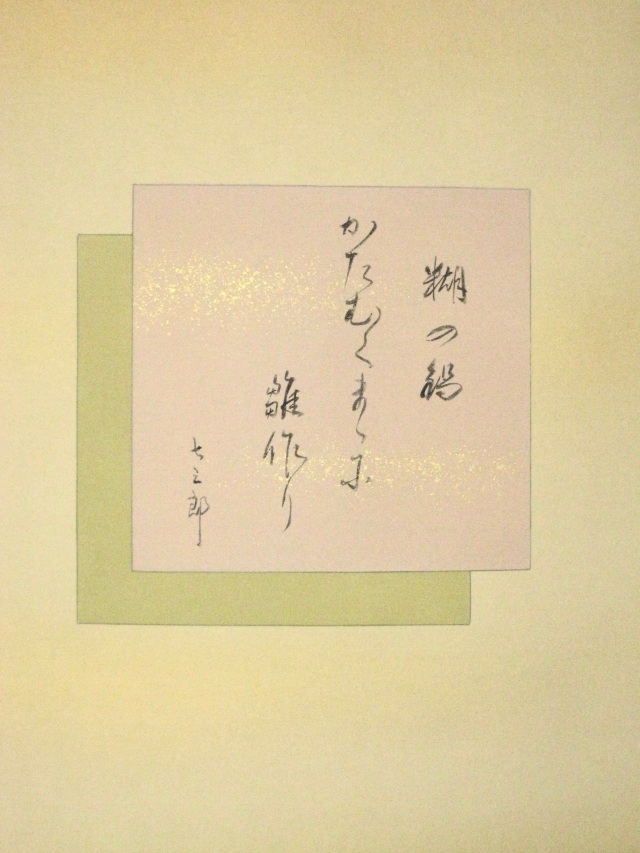 糊の鍋
かたむくまゝに
雛作り
七三郎